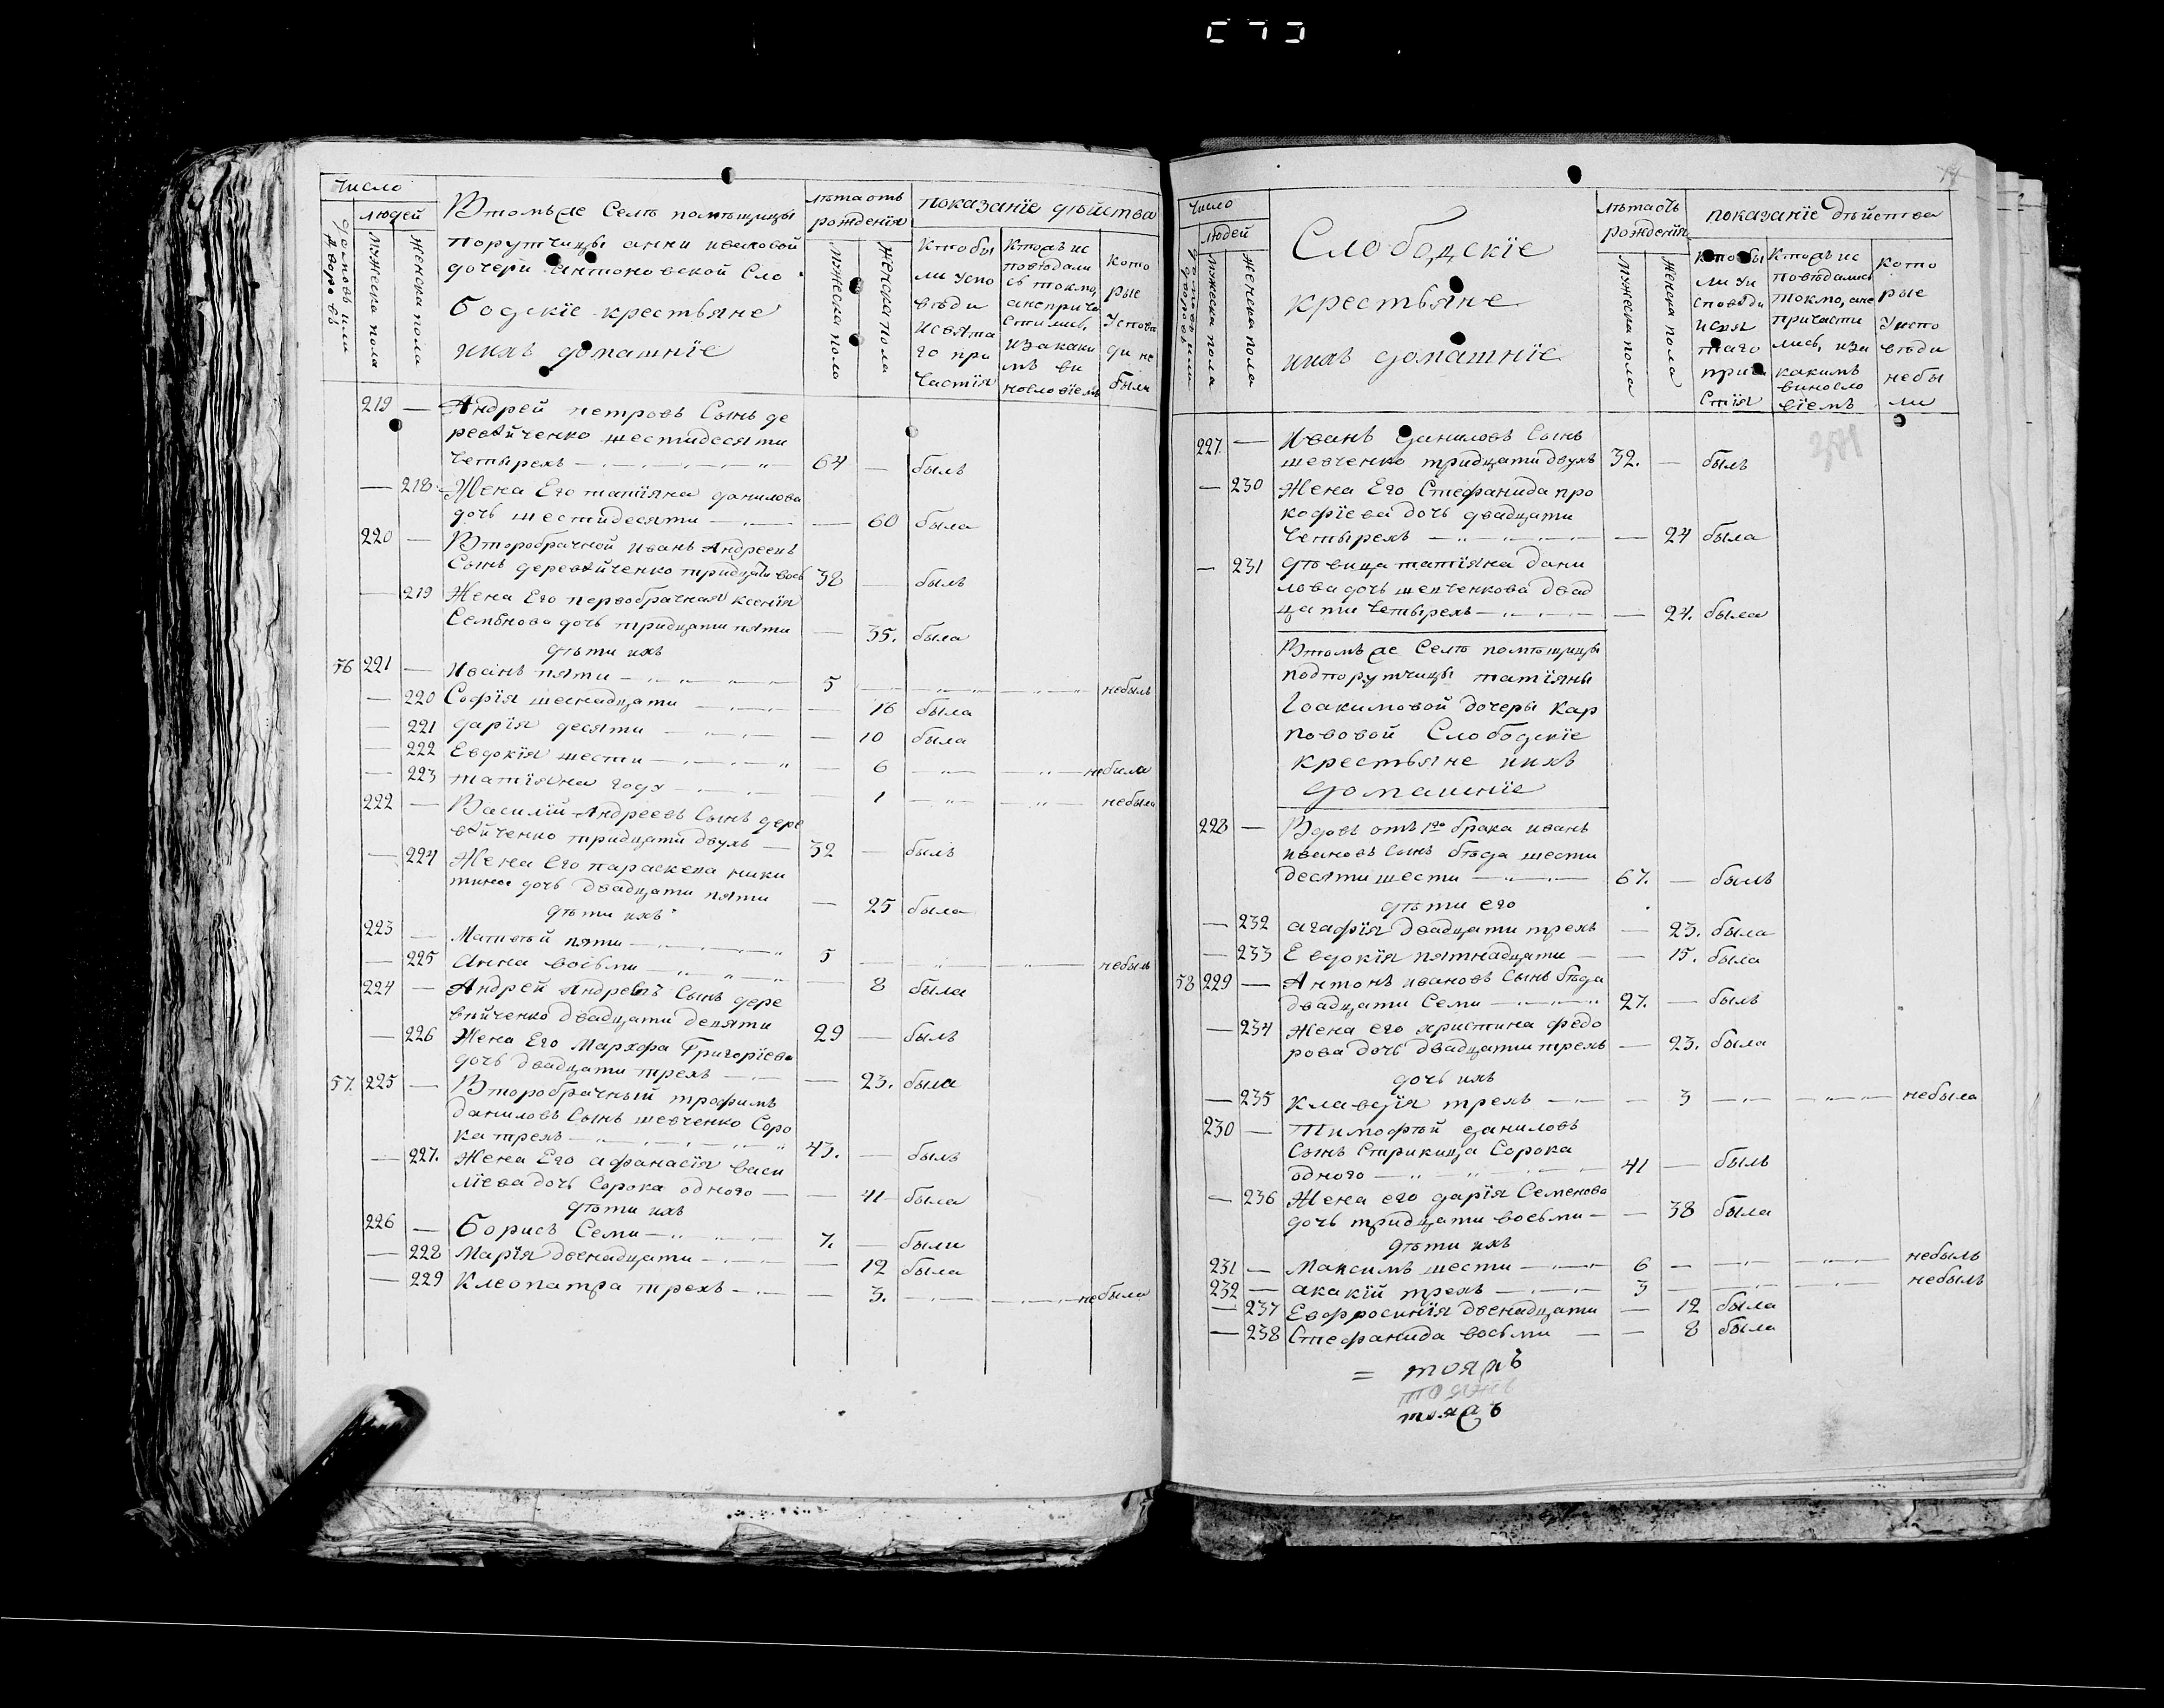 Число
людей
домовъ или дворовъ
мужеска пола
женска пола
Втомъже Селѣ помѣщицы
порутчицы анни ивановой
дочери антоновской Сло
бодскіе крестьяне
иихъ домашніе
лѣта отъ
рожденія
мужеска пола
женска пола
показаніе дѣйства
Кто бы
ли успо
вѣди
исвята
го при
частія
Ктожъ ис
повѣдали
сь токмо,
а не прича
стились,
изакаки
мъ ви
нословіемъ
кото
рые
Успове
ди не
были
219 — Андрей петровъ Сынъ де
ревѣйченко шестидесяти
четырехъ — 64 — былъ
— 218 Жена Его татіяна данилова
дочь шестидесяти — — 60 была
220 — Второбрачной иванъ Андреевъ
Сынъ деревѣйченко тридцати вось 38 — былъ
— 219 Жена Его первобрачная ксенія
Семенова дочь тридцати пяти — 35. была
дѣти ихъ
56 221 — Иванъ пяти — 5 — небылъ
— 220 Софія шеснадцати — — 16 была
— 221 дарія десяти — — 10 была
— 222 Евдокія шести — — 6 — небыла
— 223 татіяна года — — 1 — небыла
222 — Василій Андреевъ Сынъ дере
вѣйченко тридцати двухъ — 32 — былъ
— 224 Жена Его параскева ники
тина дочь двадцати пяти — 25 была
дѣти ихъ
223 — Матвѣй пяти — 5 — небылъ
— 225 Анна восьми — — 8 была
224 — Андрей Андреевъ Сынъ дере
вѣйченко двадцати девяти 29 — былъ
— 226 Жена Его Марфа Григоріева
дочь двадцати трехъ — — 23. была
57. 225 — Второбрачный трофимъ
Даниловъ Сынъ шевченко Соро
ка трехъ — 43. — былъ
— 227. Жена Его афанасія васи
ліева дочь Сорока одного — — 41 была
дѣти ихъ
226 — Борисъ Семи — 7. — были
— 228 Марія двенадцати — — 12 была
— 229 Клеопатра трехъ — — 3. — небыла
Число
людей
домовъ или дворовъ
мужеска пола
женска пола
Слободскіе
крестьяне
иихъ домашніе
лѣта отъ
рожденія
мужеска пола
женска пола
показаніе дѣйства
кто бы
ли уи
споведи
исвя
таго
прича
стія
Ктожъ ис
повѣдались
токмо, ане
причасти
лись, иза
какимъ
винословіемъ
кото
рые
Уиспо
вѣди
небы
ли
227. — Иванъ даниловъ Сынъ
шевченко тридцати двухъ 32. — былъ
— 230 Жена Его Стефанида про
кофіева дочь двадцати
четырехъ — — 24 была
— 231 дѣвица татіяна дани
лова дочь шевченкова двад
цати четырехъ — — 24. была
Втомъже Селѣ помѣщицы
подпорутчицы татіяны
Іоакимовой дочеры Кар
повой Слободскіе
крестьяне иихъ
домашніе
228 — Вдовъ отъ 1го брака иванъ
ивановъ сынъ бѣда шести
десяти шести — 67. — былъ
дѣти его
— 232 агафія двадцати трехъ — 23. была
— 233 Евдокія пятнадцати — — 15. была
58 229 — Антонъ ивановъ Сынъ бѣда
двадцати Семи — 27. — былъ
— 234 Жена его христина федо
рова дочь двадцати трехъ — 23. была
дочь ихъ
— 235 клавдія трехъ — — 3 — небыла
230 — Тимофѣй даниловъ
Сынъ Старикица Сорока
одного — 41 — былъ
— 236 Жена его дарія Семенова
дочь тридцати восьми — — 38 была
дѣти ихъ
231 — Максимъ шести — 6 — небылъ
232 — акакій трехъ — 3 — небылъ
— 237 Евфросинія двенадцати — 12 была
— 238 Стефанида восьми — — 8 была